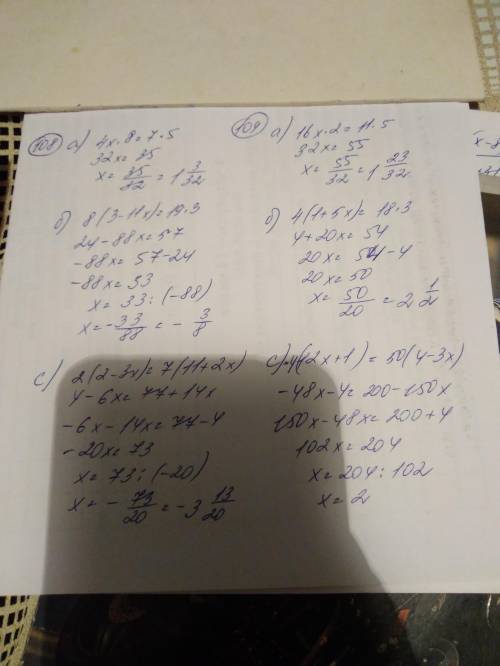 108 а) 4x·8=7·5
32x=35
x=35/32=1 3/32
б) 8(3-11x)=19·3
24-88x=57
-88x=57-24
-88x=33
x=33:(-88)
x=-33/88=-3/8
с) 2(2-3x)=7(11+2x)
4-6x=77+14x
-6x-14x=77-4
-20x=73
x=73:(-20)
x=-73/20=-3 13/20
109 а) 16x·2=11·5
32x=55
x=55/32=1 23/32
б) 4(1+5x)=18·3
4+20x=54
20x=54-4
20x=50
x=50/20=2 1/2
с) -4(12x+1)=50(4-3x)
-48x-4=200-150x
150x-48x=200+4
102x=204
x=204:102
x=2